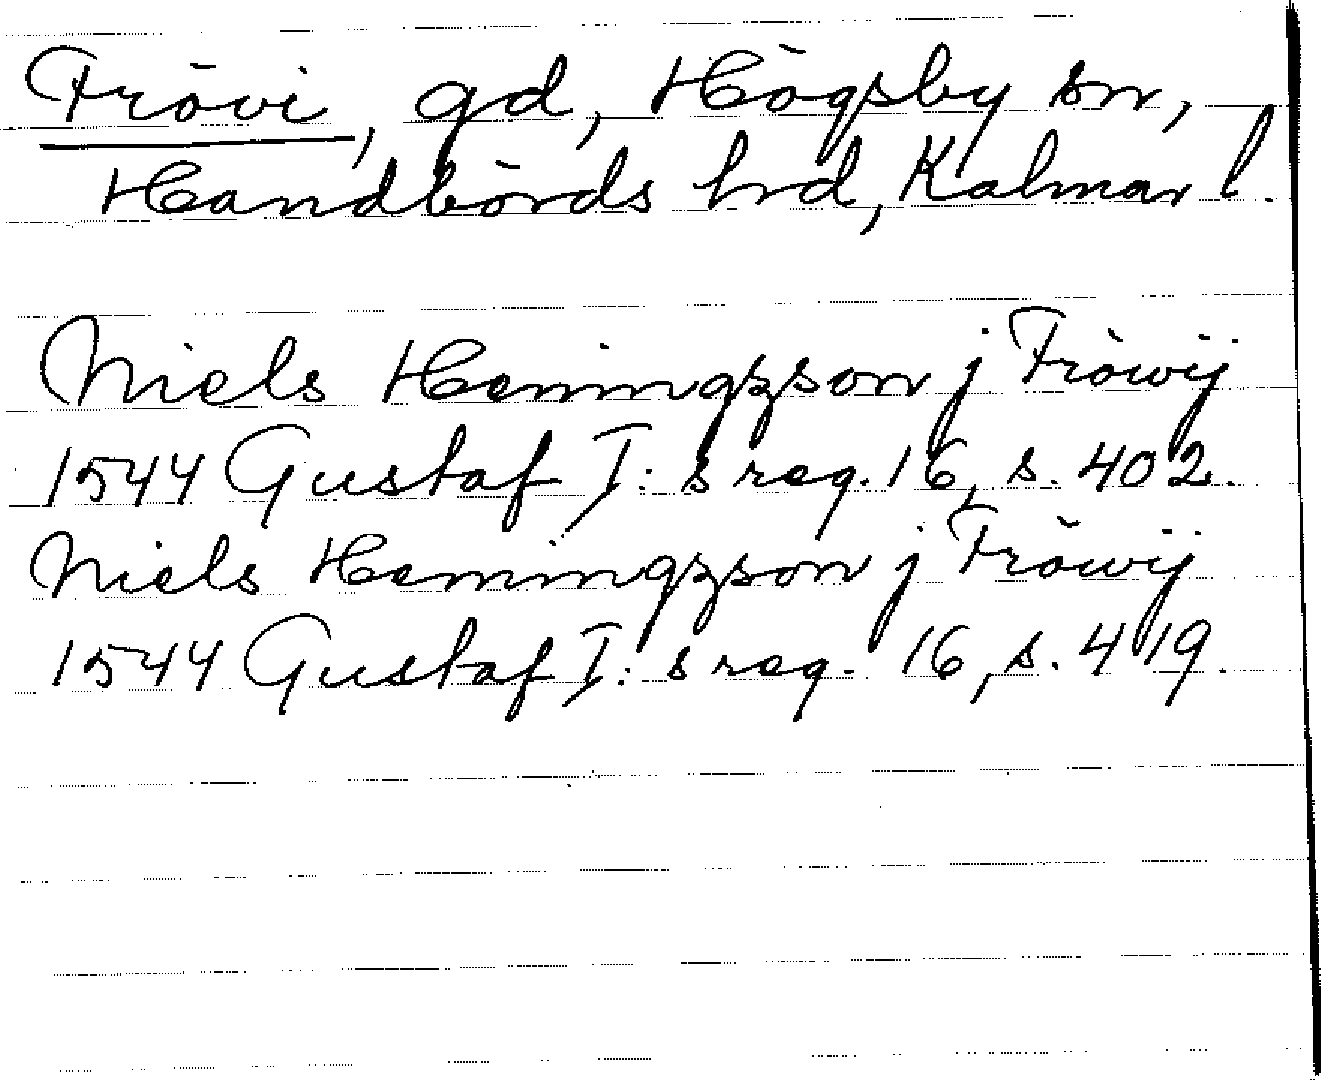 Frövi, gd, Högsby sn,
Handbörds hrd, Kalmar l.
Niels Hemingzson j Fröwij
1544 Gustaf I:s reg. 16, s. 402.
Niels Hemingzson j Fröwij
1544 Gustaf I:s reg. 16, s. 419.